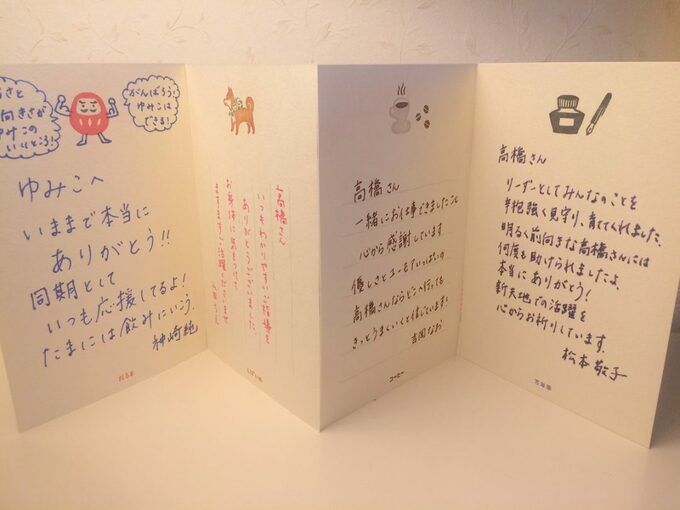 がんばろう!
ゆみこは
できる!
ゆみこの
いいところ!
ゆみこへ
いままで本当に
ありがとう!!
同期として
いつも応援してるよ!
たまには飲みにいこう。
神崎純
だるま
高橋さん
いつもわかりやすいご指導を
ありがとうございました。
お身体に気をつけて
ますますご活躍くださいませ
高橋さん
一緒にお仕事できましたこと
心から感謝しています
優しさとユーモアいっぱいの
高橋さんならどこへ行っても
きっとうまくいくと信じています!
吉岡なお
コーヒー
高橋さん
リーダーとしてみんなのことを
辛抱強く見守り、育ててくれました。
明るく前向きな高橋さんには
何度も助けられましたよ。
本当にありがとう!
新天地での活躍を
心からお祈りしています。
松本敬子
万年筆